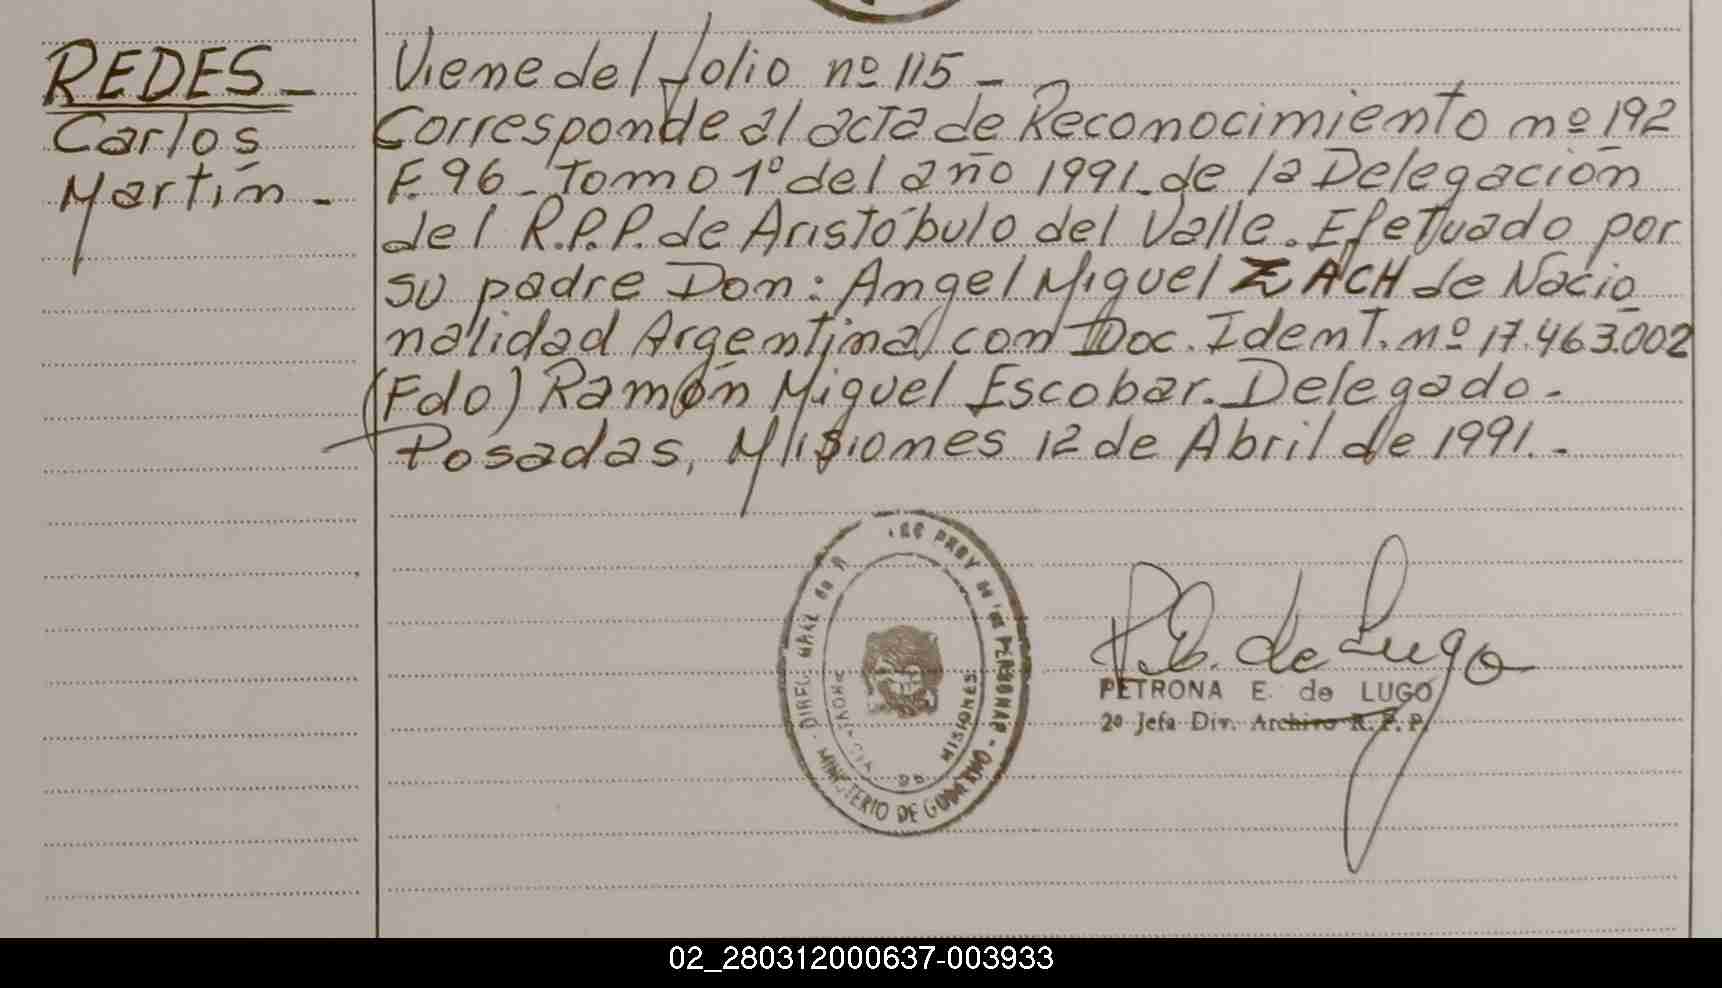 REDES_
Carlos
Martín -
Viene del folio nº 115 -
Corresponde al acta de Reconocimiento nº 192
F. 96 - Tomo 1º del año 1991 - de la Delegación
del R.P.P. de Aristóbulo del Valle. Efetuado por
su padre Don: Angel Miguel ZACH de Nacio
nalidad Argentina, con Doc. Ident. nº 17.463.002
(Fdo) Ramón Miguel Escobar. Delegado.-
Posadas, Misiones 12 de Abril de 1991.-
MINISTERIO DE GOBIERNO
PROVINCIA DE MISIONES
P.E. de Lugo
PETRONA E. de LUGO
2ª Jefa Div. Archivo R.P.P.
02_280312000637-003933